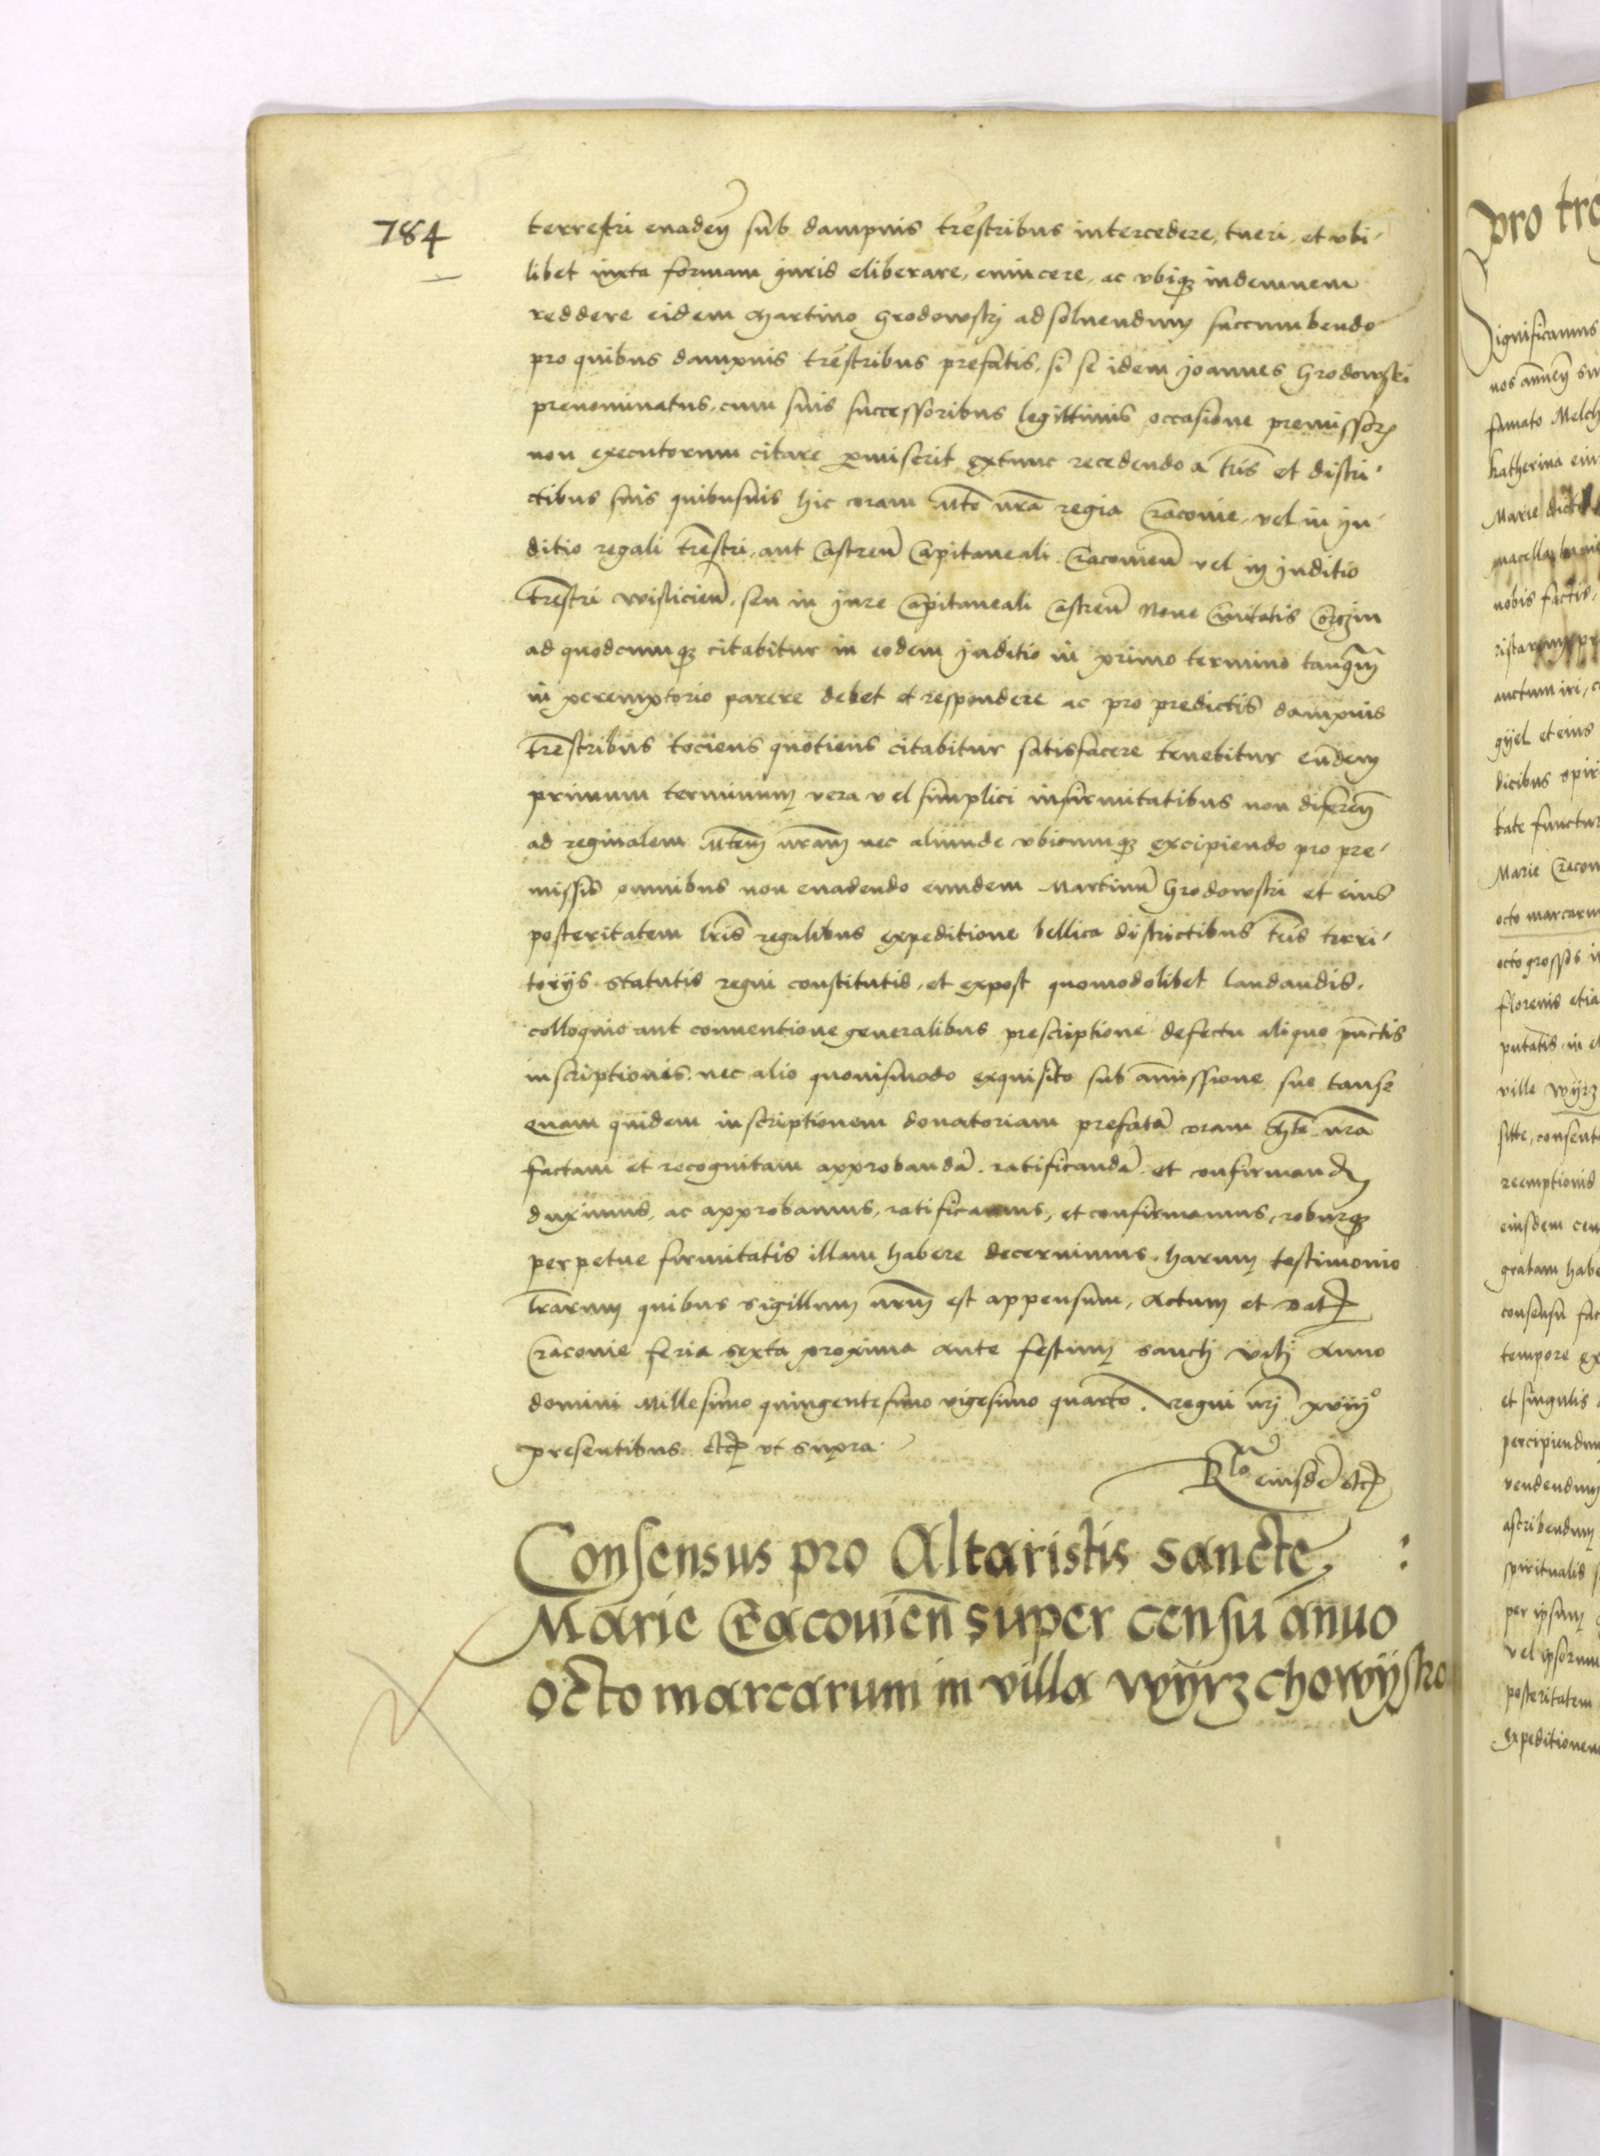 784
terrestri euadeñ sub dampnis trestribus intercedere, tueri, et vbi-
libet iuxta formam iuris eliberare, euincere, ac vbiqz indemnem
reddere eidem Martino Grodowski ad soluendum succumbendo
pro quibus dampnis trestribus prefatis, si se idem Joannes Grodowski
prenominatus, cum suis successoribus legittimis occasione premissoꝝ
non executorum citare ꝑmiserit extunc recedendo a tris et distri-
ctibus suis quibusuis hic coram Mte nra regia Cracouie, vel in Ju-
ditio regali trestri, aut Castreñ Capitaneali Cracouieñ vel in Juditio
trestri wislicieñ, seu in Jure Capitaneali Castreñ Noue Ciuitatis Corczin
ad quodcumqz citabitur in eodem Juditio in primo termino tanqm
in peremptorio parere debet et respondere ac pro predictis dampnis
trestribus tociens quotiens citabitur satisfacere tenebitur eundem
primum terminum vera vel simplici infirmitatibus non difereñ
ad reginalem Mtem nram nec aliunde vbicumqz excipiendo pro pre-
missis omnibus non euadendo eundem Martinu Grodowski et eius
posteritatem lris regalibus expeditione bellica districtibus tris terri-
torijs statutis regni constitutis, et expost quomodolibet laudandis,
colloquio aut conuentione generalibus prescriptione defectu aliquo punctis
inscriptionis, nec alio quouismodo exquisito sub amissione sue cause
Quam quidem inscriptionem donatoriam prefata coram Mte nra
factam et recognitam approbanda, ratificanda et confirmandã
duximus, ac approbamus, ratificamus, et confirmamus, roburqz
perpetue firmitatis illam habere decernimus, harum testimonio
lrarum quibus sigillum nrm est appensum, Actum et Dat
Cracouie feria sexta proxima ante festum sancti viti Anno
domini Millesimo quingentesimo vigesimo quarto. regni nri xviijº
presentibus etc vt supra
Rlo eiusde etc
Consensus pro Altaristis sancte :
Marie Cracouieñ super censu anuo
octo marcarum in villa wyrzchowysko
pro tr
Significamus
nos
famato Melch
Katherina eius
Marie dict
nobis factis,
gyel et eius
dicibus
tate functu
Marie Cracou
octo marcarum
octo grossis i
florenis etia
putatis in
ville wyrz
sitte, consent
reemptionis
eiusdem cen
gratam habe
consensu fac
tempore ex
et singulis
percipiendum
vendendum
ascribendum
spiritualis
per ipsum
vel ipsorum
posteritatem
expeditionem